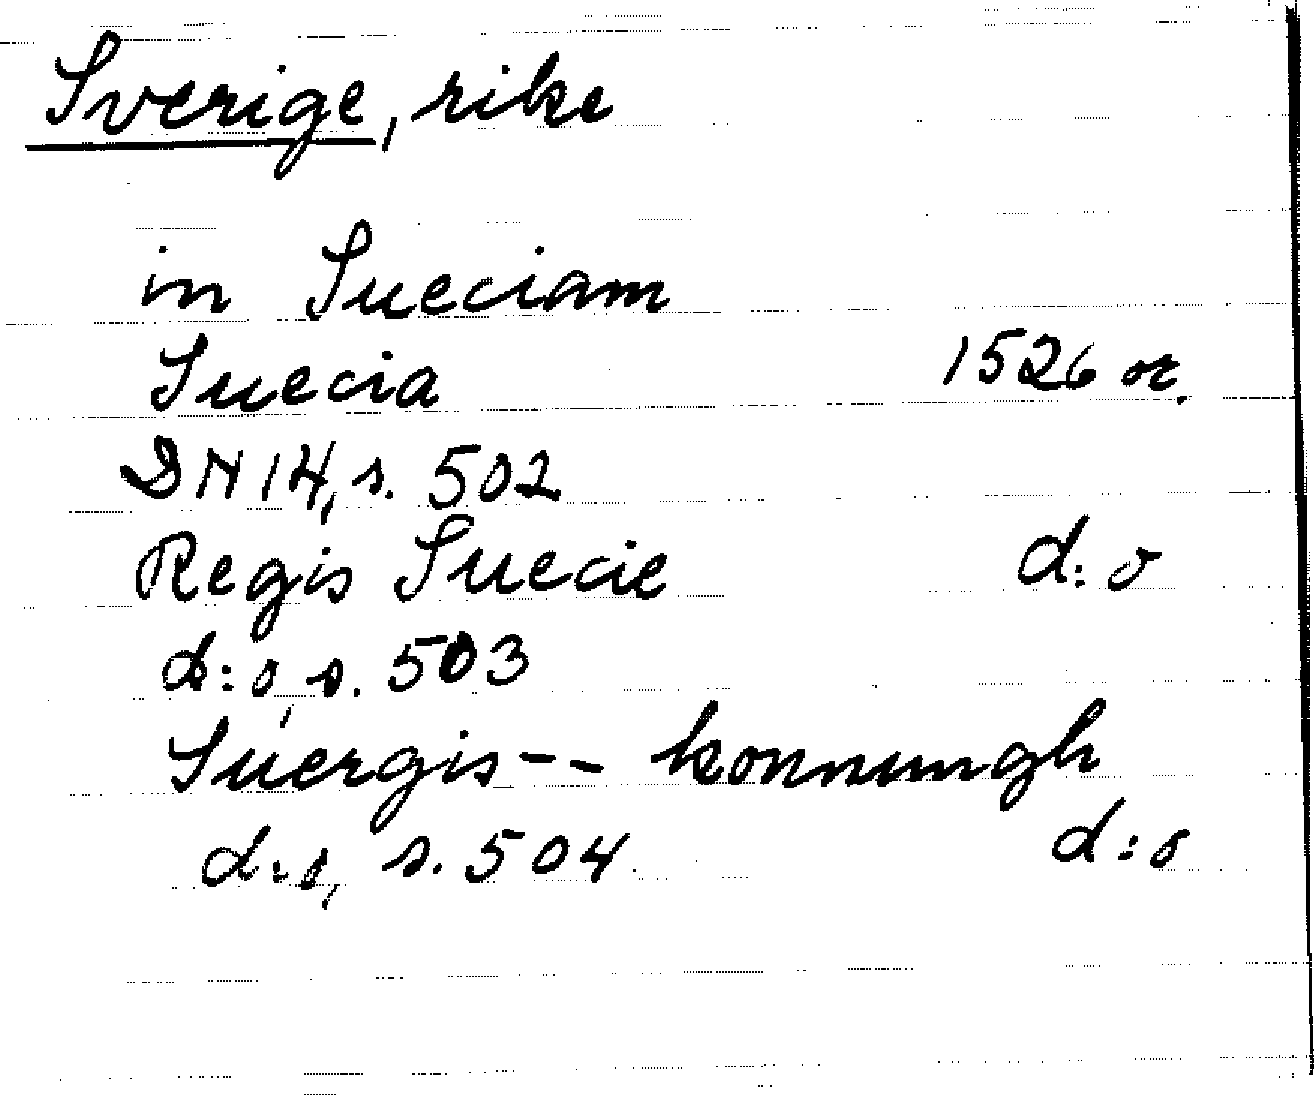 Sverige, rike
in Sueciam
Suecia 1526 or.
DN 14, s. 502
Regis Suecie d:o
d:o, s. 503
Suergis -- konnungh
d:o, s. 504 d:o